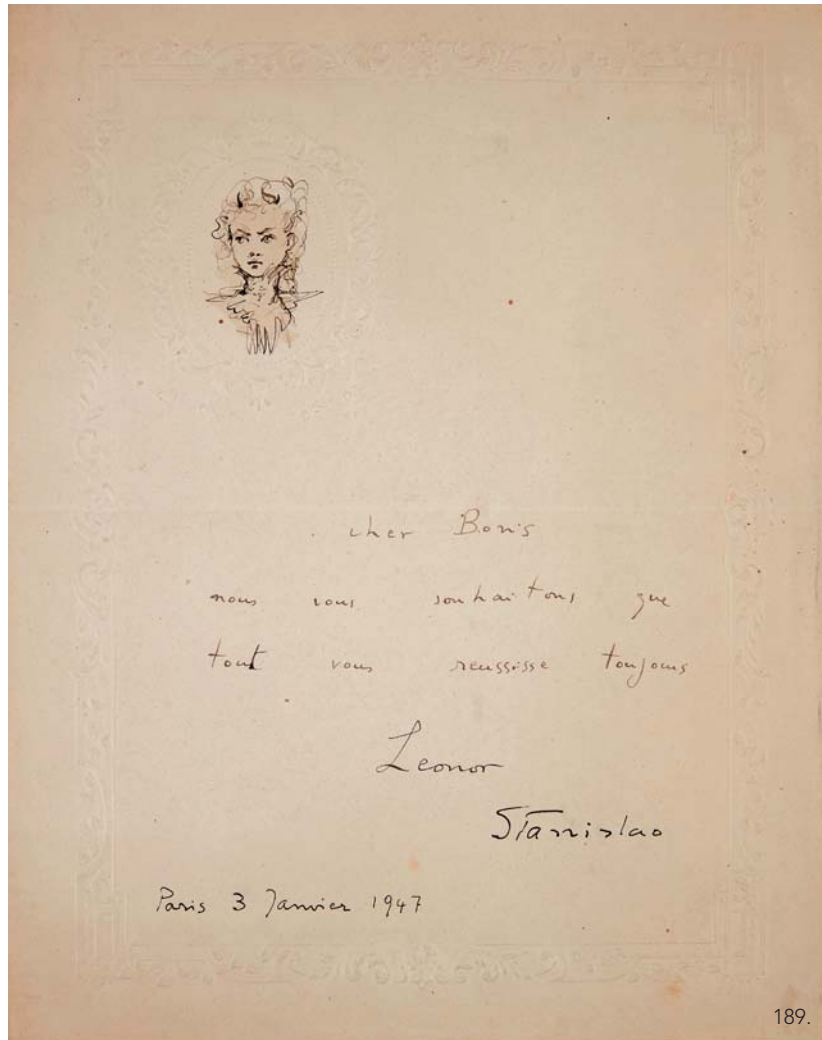 cher Boris
nous vous souhaitons que
tout vous reussisse toujours
Leonor
Stanislao
Paris 3 Janvier 1947
189.